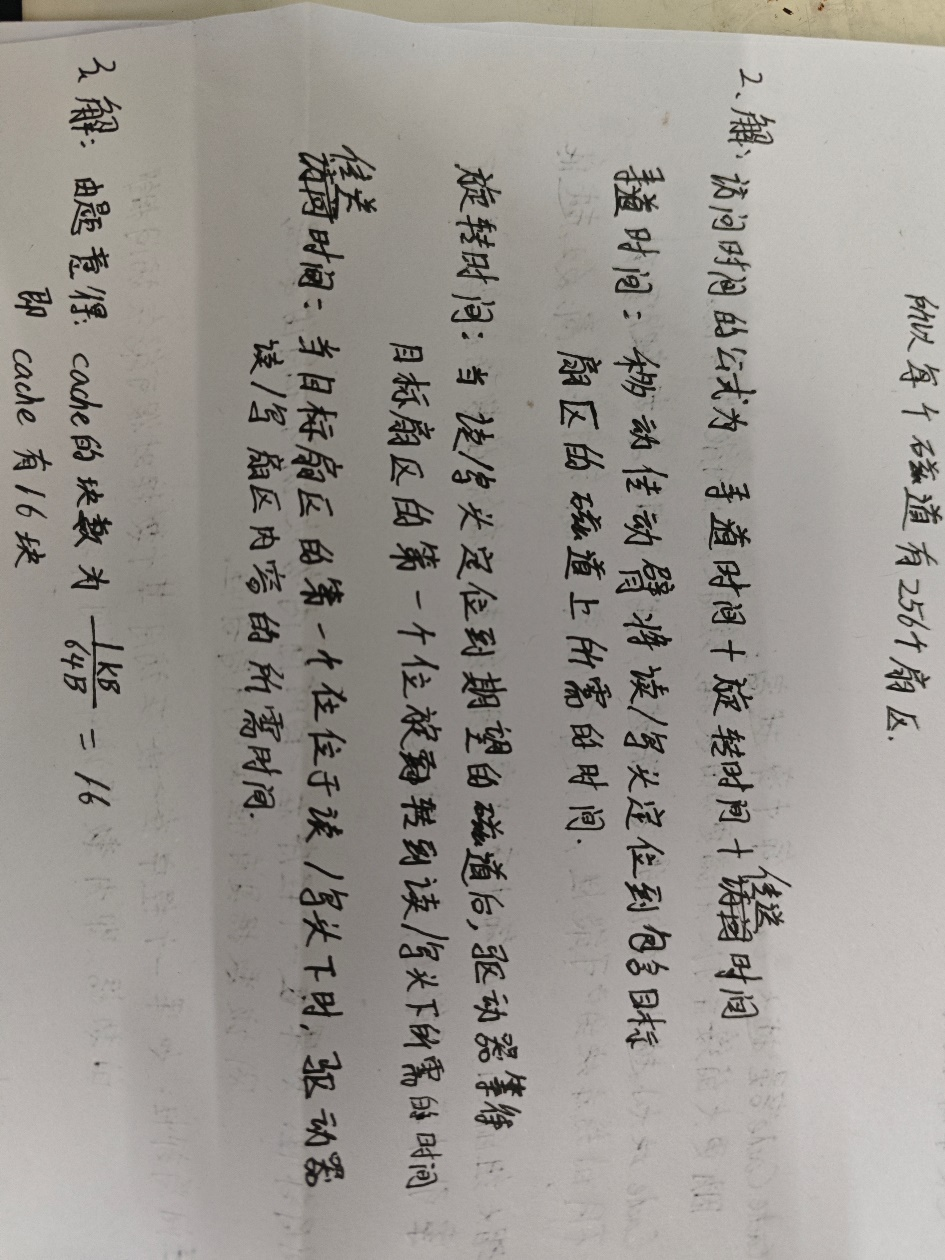 所以每个磁道有256个扇区.
2、解: 访问时间的公式为 寻道时间+旋转时间+传送时间
寻道时间: 移动传动臂将读/写头定位到包含目标
扇区的磁道上所需的时间.
旋转时间: 当读/写头定位到期望的磁道后, 驱动器等待
目标扇区的第一个位旋转到读/写头下所需的时间
传送时间: 当目标扇区的第一个位位于读/写头下时, 驱动器
读/写扇区内容的所需时间.
3、解: 由题意得: cache的块数为 1KB/64B = 16
即 cache 有16块